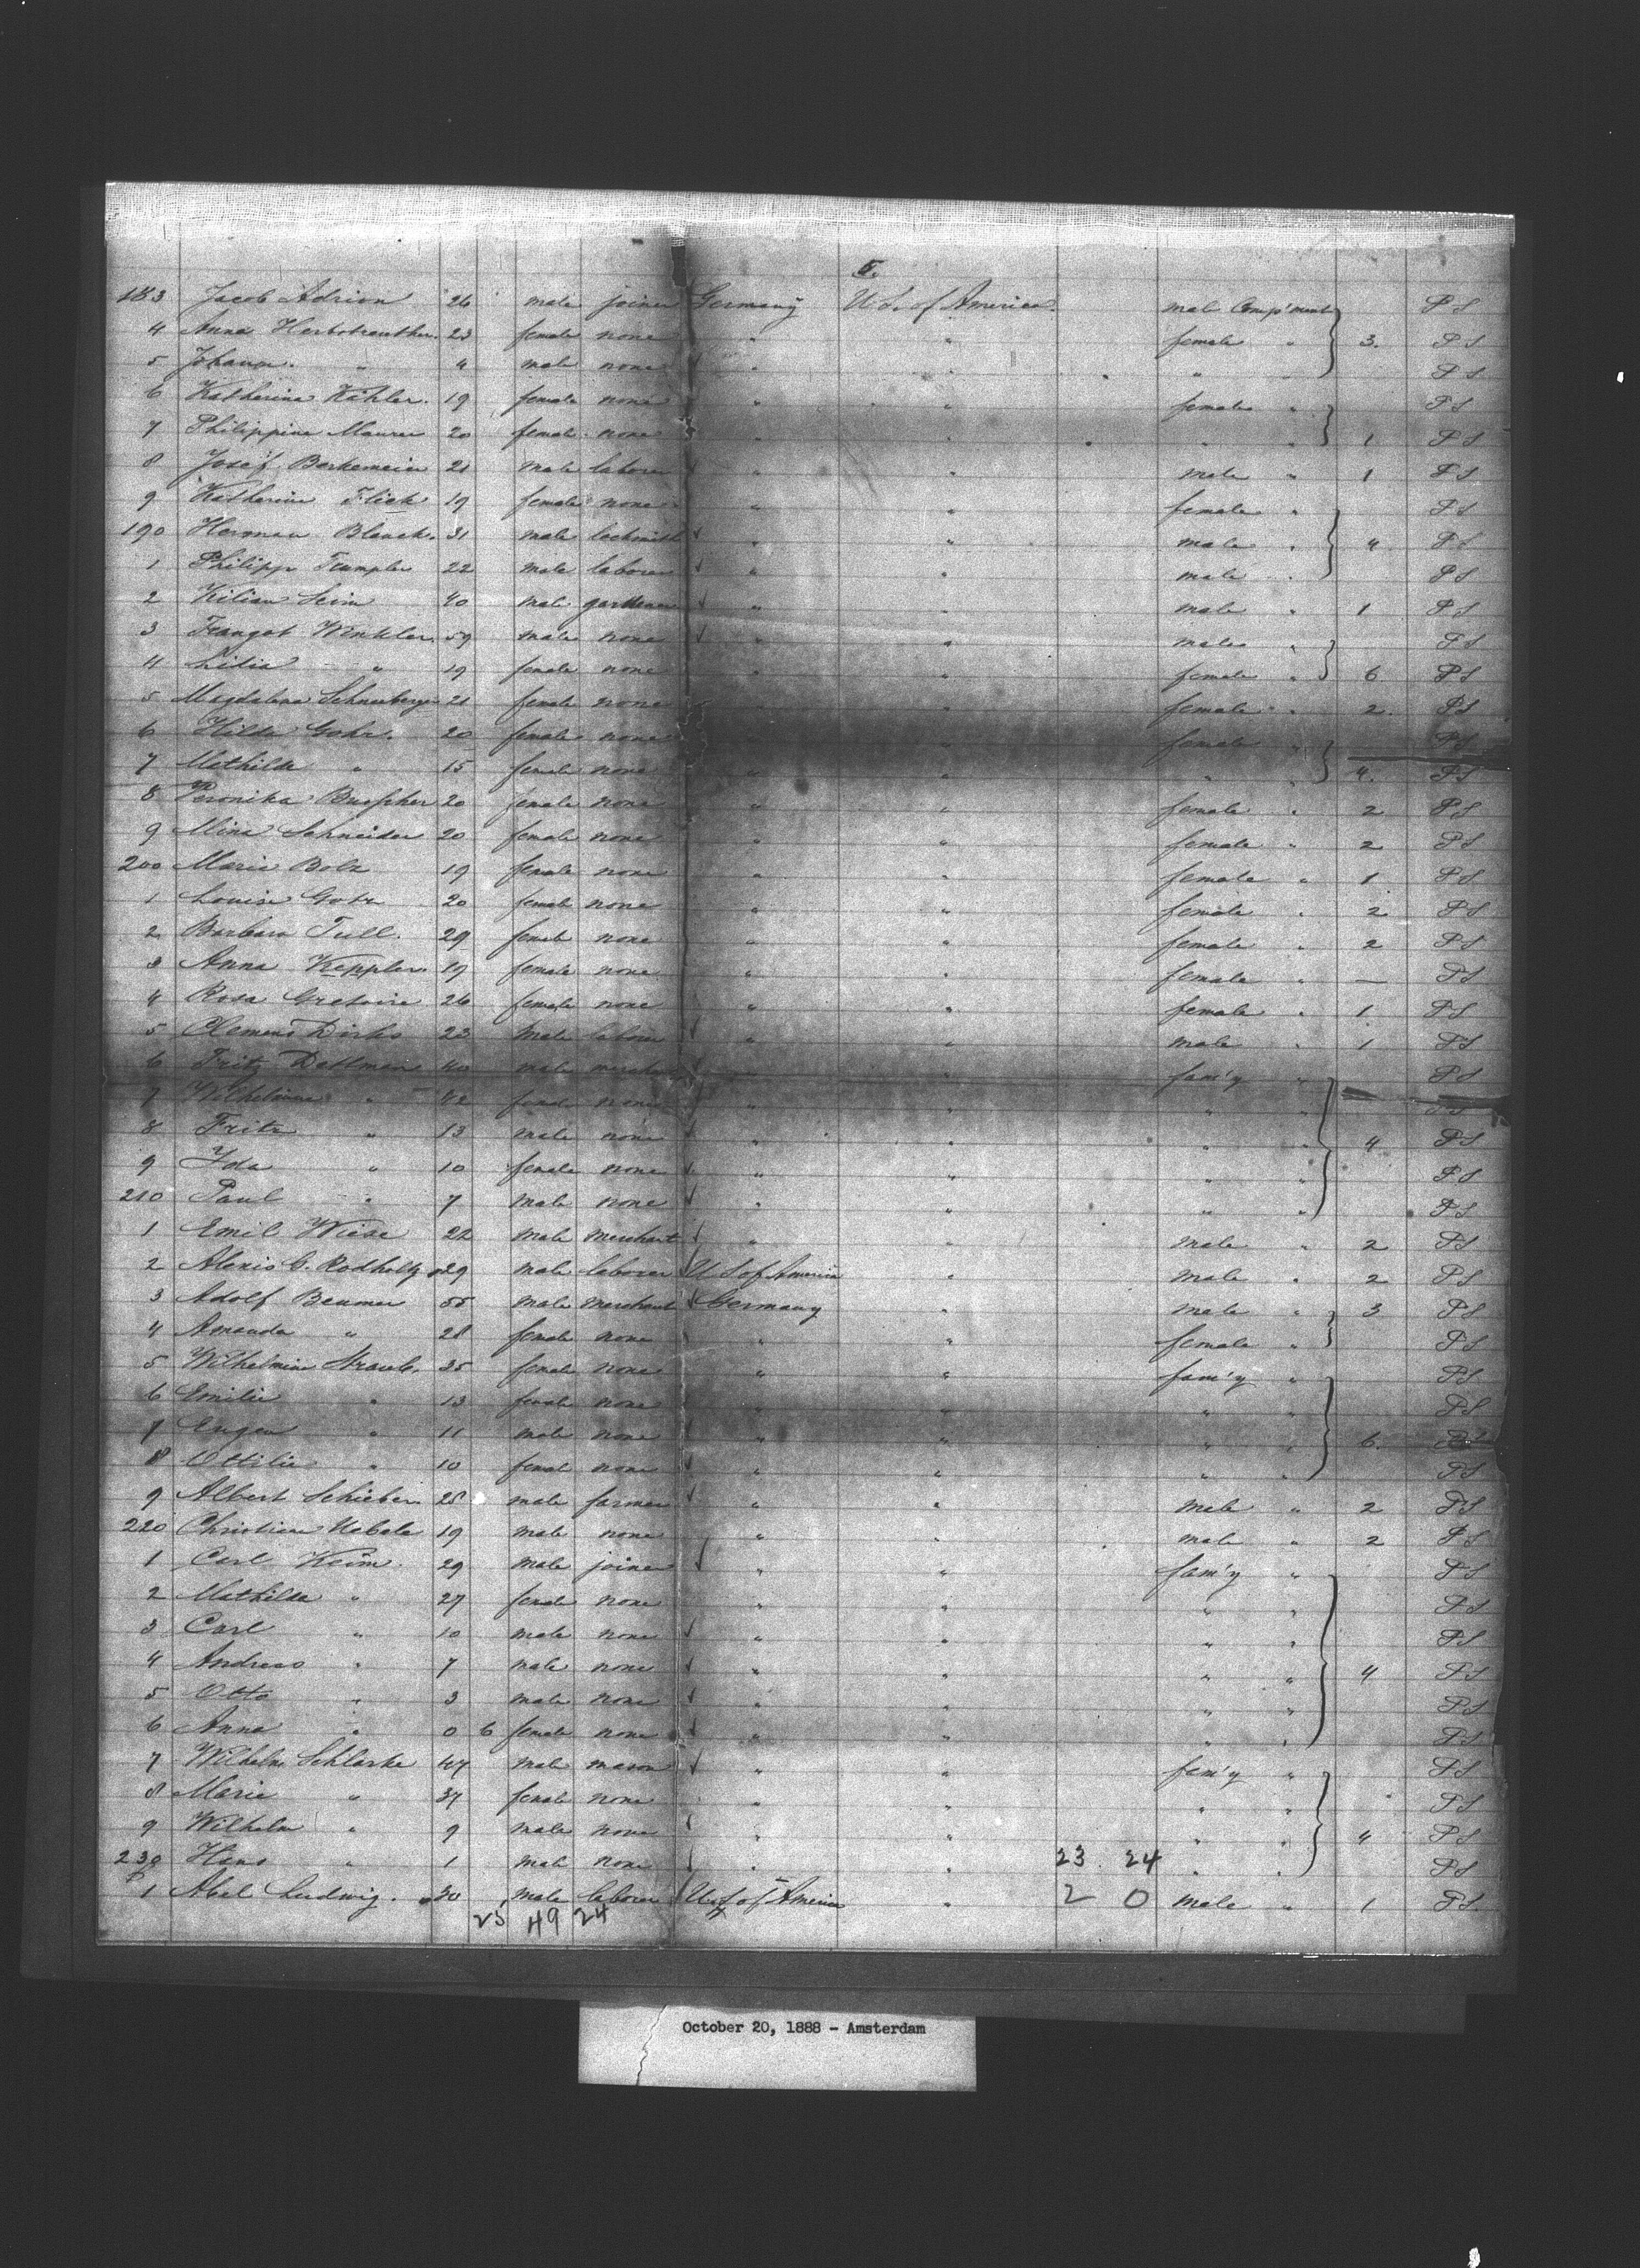 5.
183 Jacob Adrion 26 male joiner Germany U S. of America. male Comp'ment P S
4 Anna Herbstreuther. 23 female none " " female " 3. P S
5 Johann. " 4 male none " " " P S
6 Katherina Kähler. 19 female none " " female " P S
7 Philippine Maurer 20 female none " " " " 1 P S
8 Josef Berkemeier 21 male laborer " " male " 1 P S
9 Katherine Flick 19 female none " " female " P S
190 Herman Blanck. 31 male locksmith " " male " 4 P S
1 Philipp Trumpler 22 male laborer " " male " P S
2 Kilian Seim 40 male gardener " " male " 1 P S
3 Traugot Winkler. 59 male none " " male " P S
4 Lidia " 19 female none " " female " 6 P S
5 Magdalena Schneeberger 21 female none " " female " 2. P S
6 Hilda Gohr. 20 female none " " female " P S
7 Mathilde " 15 female none " " " " 4. P S
8 Veronika 20 female none " " female " 2 P S
9 Mina Schneider 20 female none " " female " 2 P S
200 Marie Bolz 19 female none " " female " 1 P S
1 Louise Gotz 20 female none " " female " 2 P S
2 Barbara Tull. 29 female none " " female " 2 P S
3 Anna Keppler. 19 female none " " female " — P S
4 Rosa Gretoire 26 female none " " female " 1 P S
5 Clemens Dirks 23 male laborer " " male " 1 P S
6 Fritz Dettman 40 male merchant " " fam'y " P S
7 Wilhelmine " 42 female none " " " " P S
8 Fritz " 13 male none " " " " 4 P S
9 Ida " 10 female none " " " " P S
210 Paul " 7 male none " " " " P S
1 Emil Wiese 22 male merchant " " male " 2 P S
2 Alexis C. Rodholtz 29 male laborer U S of America " male " 2 P S
3 Adolf Beumer 55 male merchant Germany " male " 3 P S
4 Amanda " 28 female none " " female " P S
5 Wilhelmine Straub. 35 female none " " fam'y " P S
6 Emilie " 13 female none " " " " P S
7 Eugen " 11 male none " " " " 6. P S
8 Ottilie " 10 female none " " " " P S
9 Albert Schieber. 28 male farmer " " male " 2 P S
220 Christian Nabele 19 male none " " male " 2 P S
1 Carl Keim. 29 male joiner " " fam'y " P S
2 Mathilda " 27 female none " " " " P S
3 Carl " 10 male none " " " " P S
4 Andreas " 7 male none " " " " 4 P S
5 Otto " 3 male none " " " " P S
6 Anna " 0 6 female none " " " " P S
7 Wilhelm Schlarke 47 male mason " " fam'y " P S
8 Marie " 37 female none " " " " P S
9 Wilhelm " 9 male none " " " " 4 P S
230 Hans " 1 male none " " 23 24 " " P S
1 Abel Ludwig. 30 male laborer U S of America " 2 0 male " 1 P S
25 49 24
October 20, 1888 - Amsterdam